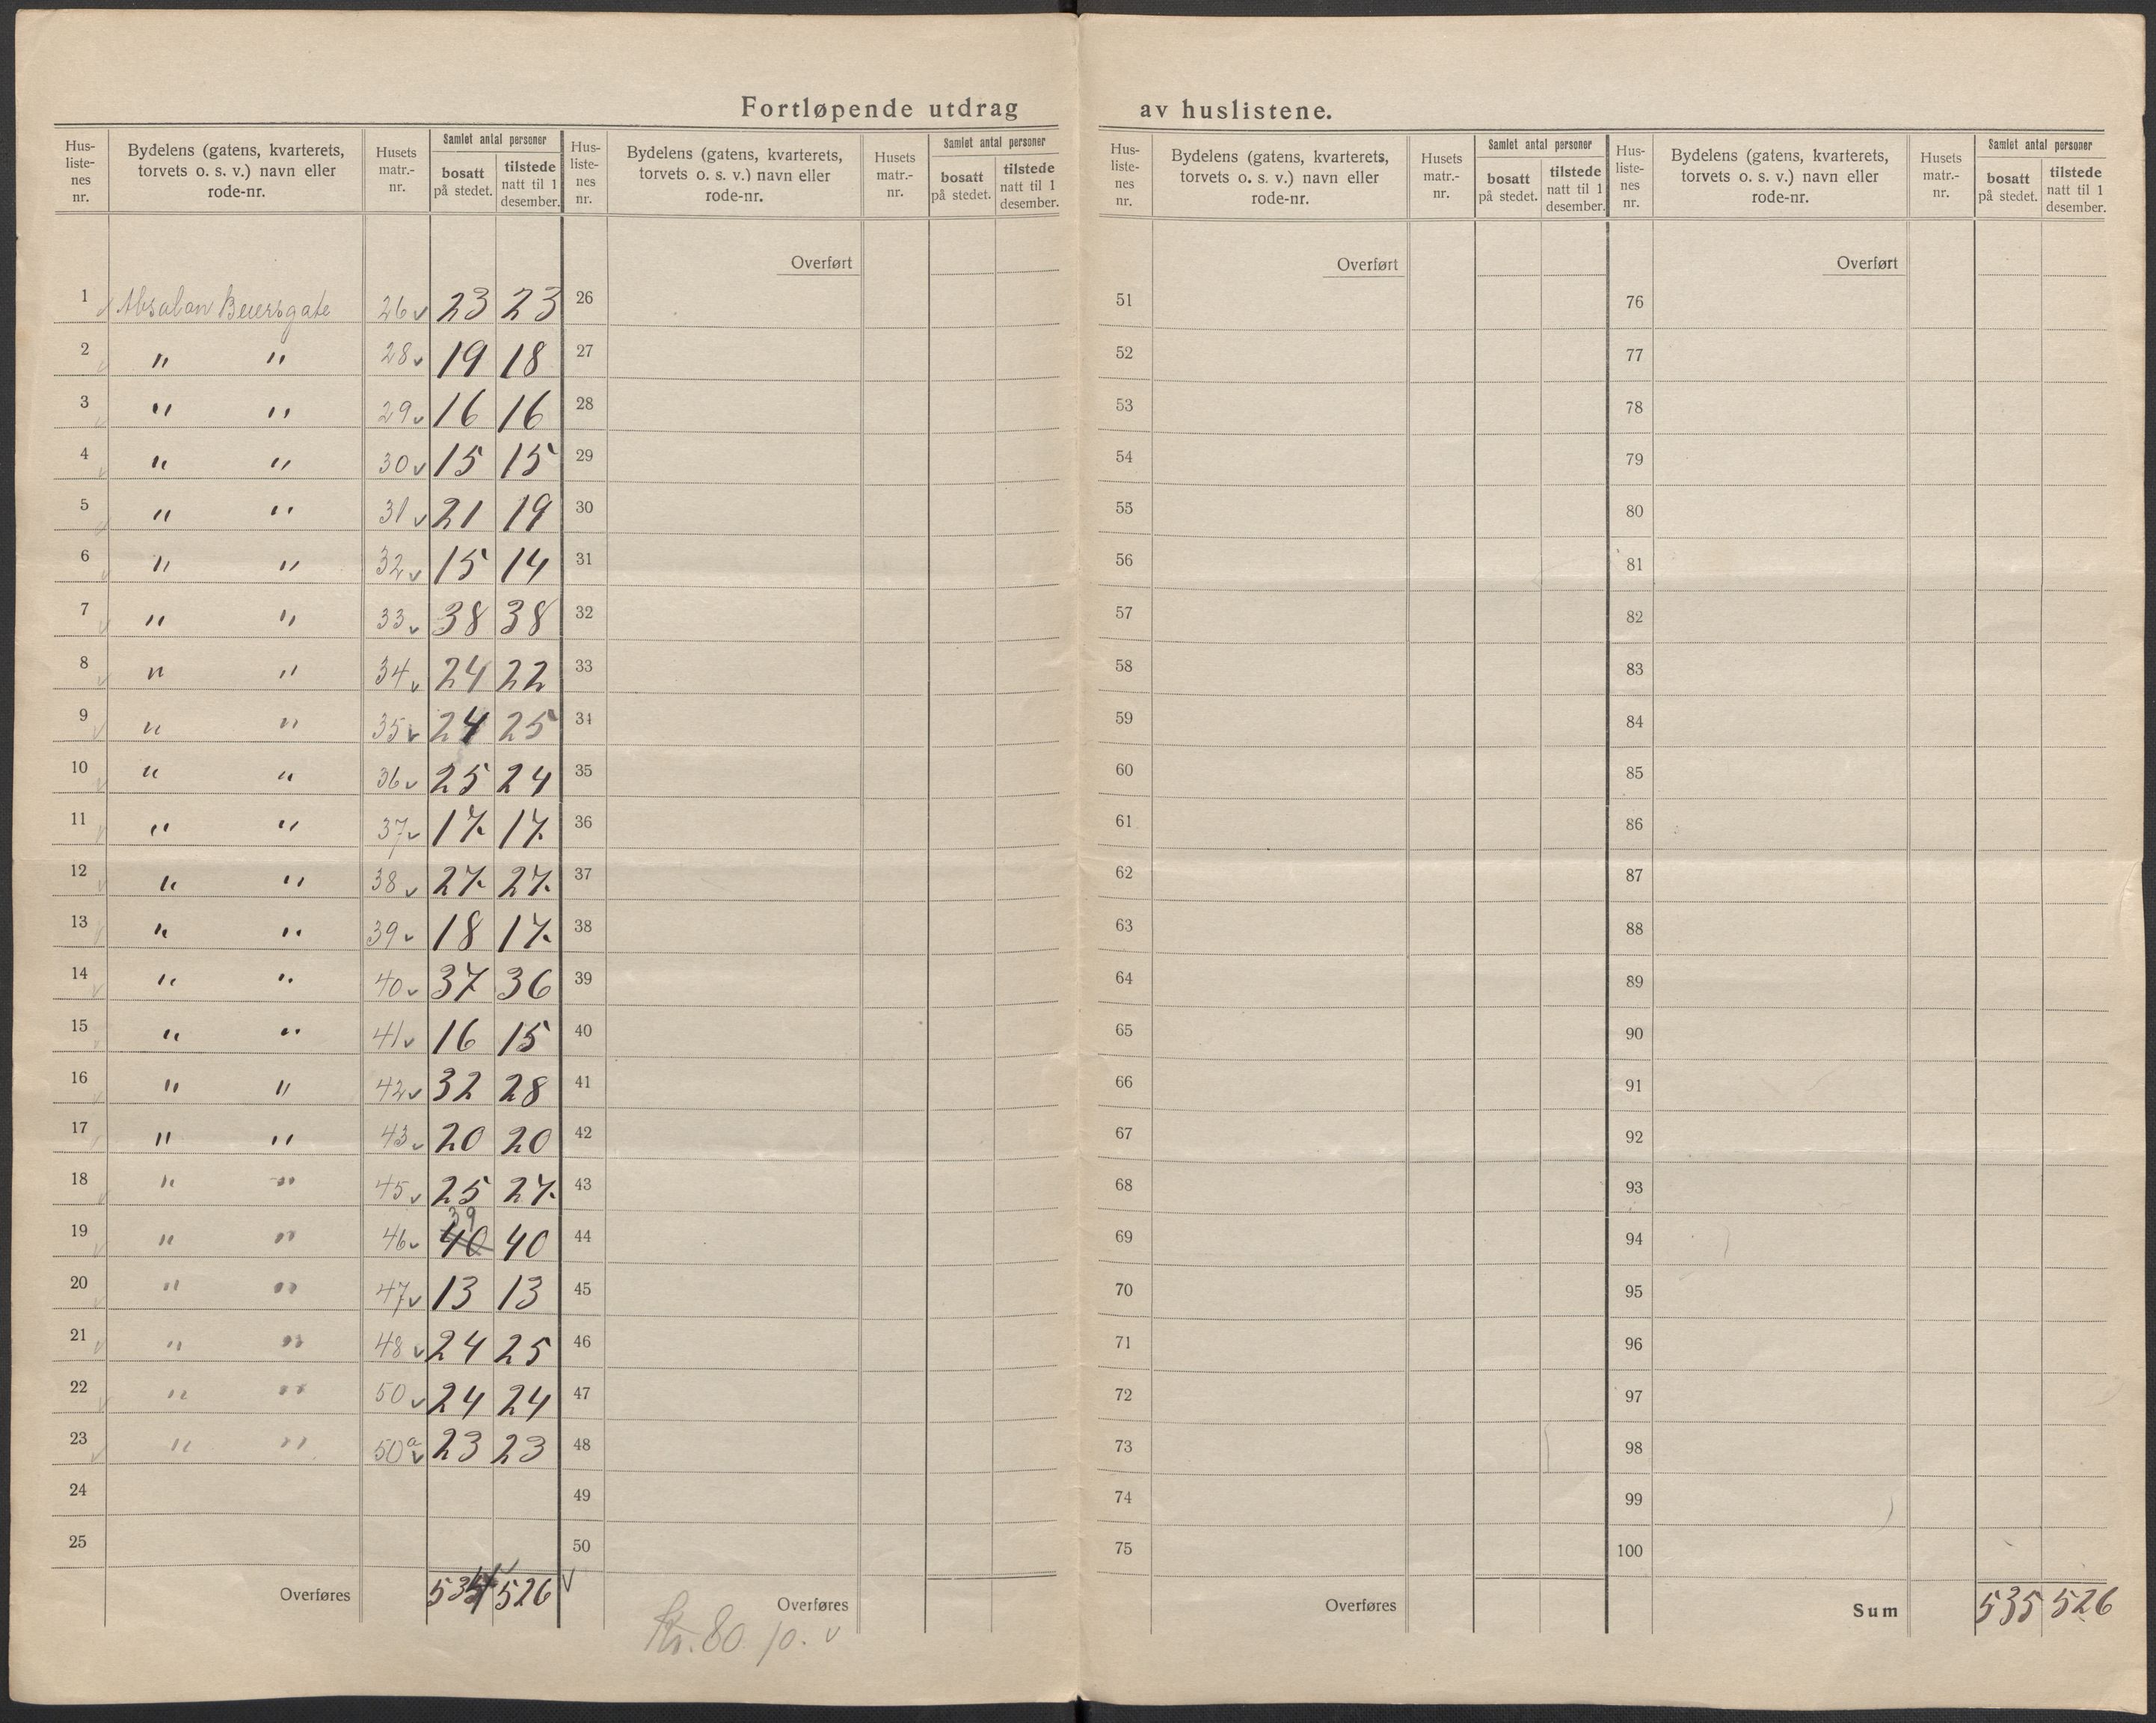 Fortløpende utdrag av huslistene.
Hus-liste-nes nr. Bydelens (gatens, kvarterets, torvets o. s. v.) navn eller rode-nr. Husets matr.-nr. Samlet antal personer bosatt på stedet. tilstede natt til 1 desember.
Hus-liste-nes nr. Bydelens (gatens, kvarterets, torvets o. s. v.) navn eller rode-nr. Husets matr.-nr. Samlet antal personer bosatt på stedet. tilstede natt til 1 desember.
Hus-liste-nes nr. Bydelens (gatens, kvarterets, torvets o. s. v.) navn eller rode-nr. Husets matr.-nr. Samlet antal personer bosatt på stedet. tilstede natt til 1 desember.
Hus-liste-nes nr. Bydelens (gatens, kvarterets, torvets o. s. v.) navn eller rode-nr. Husets matr.-nr. Samlet antal personer bosatt på stedet. tilstede natt til 1 desember.
Overført Overført Overført
1 Absalon Beiersgate 26 v 23 23 26 51 76
2 " " 28 v 19 18 27 52 77
3 " " 29 v 16 16 28 53 78
4 " " 30 v 15 15 29 54 79
5 " " 31 v 21 19 30 55 80
6 " " 32 v 15 14 31 56 81
7 " " 33 v 38 38 32 57 82
8 " " 34 v 24 22 33 58 83
9 " " 35 v 24 25 34 59 84
10 " " 36 v 25 24 35 60 85
11 " " 37 v 17 17 36 61 86
12 " " 38 v 27 27 37 62 87
13 " " 39 v 18 17 38 63 88
14 " " 40 v 37 36 39 64 89
15 " " 41 v 16 15 40 65 90
16 " " 42 v 32 28 41 66 91
17 " " 43 v 20 20 42 67 92
18 " " 45 v 25 27 43 68 93
19 " " 46 v 40 39 40 44 69 94
20 " " 47 v 13 13 45 70 95
21 " " 48 v 24 25 46 71 96
22 " " 50 v 24 24 47 72 97
23 " " 50a v 23 23 48 73 98
24 49 74 99
25 50 75 100
Overføres 534 526 v Overføres Overføres Sum 535 526
Kr. 80 10. v